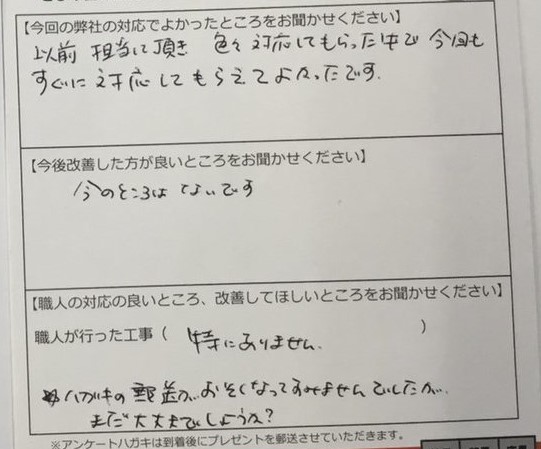 【今回の弊社の対応でよかったところをお聞かせください】
以前 担当して頂き 色々対応してもらった中で 今回も
すぐに対応してもらえてよかったです.
【今後改善した方が良いところをお聞かせください】
今のところはないです
【職人の対応の良いところ、改善してほしいところをお聞かせください】
職人が行った工事（ 特にありません. ）
※ハガキの郵送がおそくなってすみませんでしたが.
まだ大丈夫でしょうか?
※アンケートハガキは到着後にプレゼントを郵送させていただきます。